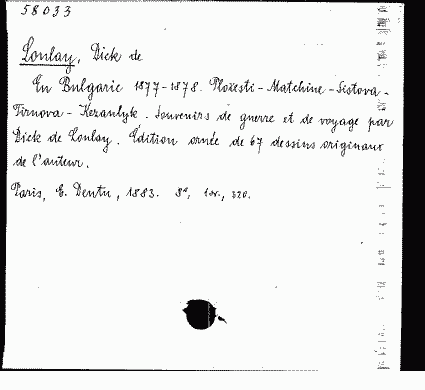 58033
Lonlay, Dick de
En Bulgarie 1877-1878. Ploïesti - Matchine - Sistova -
Tirnova - Kezanlyk. Souvenirs de guerre et de voyage par
Dick de Lonlay. Édition ornée de 67 dessins originaux
de l'auteur.
Paris, E. Dentu, 1883. 8°, 320.